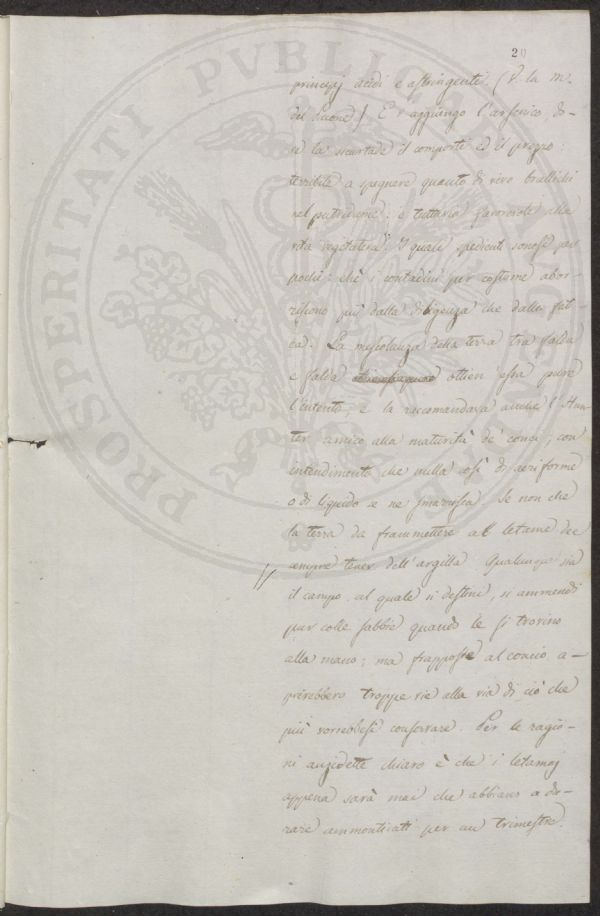 29
principj acidi e astringenti. (V. la m.
del Buone) E v'aggiungo l'arsenico, do-
ve la scurtade il comporti ed il prezzo:
terribile a spegnere quanto di vivo brulichi
nel putridume; e tuttavia favorevole alla
vita vegetativa. I quali spedienti sonosi per
pochi: chè i contadini per costume abor-
riscono più dalla diligenza che dalla fati-
ca. La mescolanza della terra tra falda
e falda ottien essa pure
l'intento, e la raccomandava anche l'Hun-
ter amico alla maturità de' conci, con
intendimento che nulla così di aeriforme
o di liquido se ne smarrisca. Se non che
la terra da frammettere al letame dee
sempre tener dell'argilla. Qualunque sia
il campo al quale si destini, si ammendi
pur colle sabbie quando le si trovino
alla mano; ma frapposte al concio a-
prirebbero troppe vie alla via di ciò che
più vorrebbesi conservare. Per le ragio-
ni anzidette chiaro è che i letamej
appena sarà mai che abbiano a du-
rare ammonticati per un trimestre.
PROSPERITATI PVBLICAE AVGENDAE